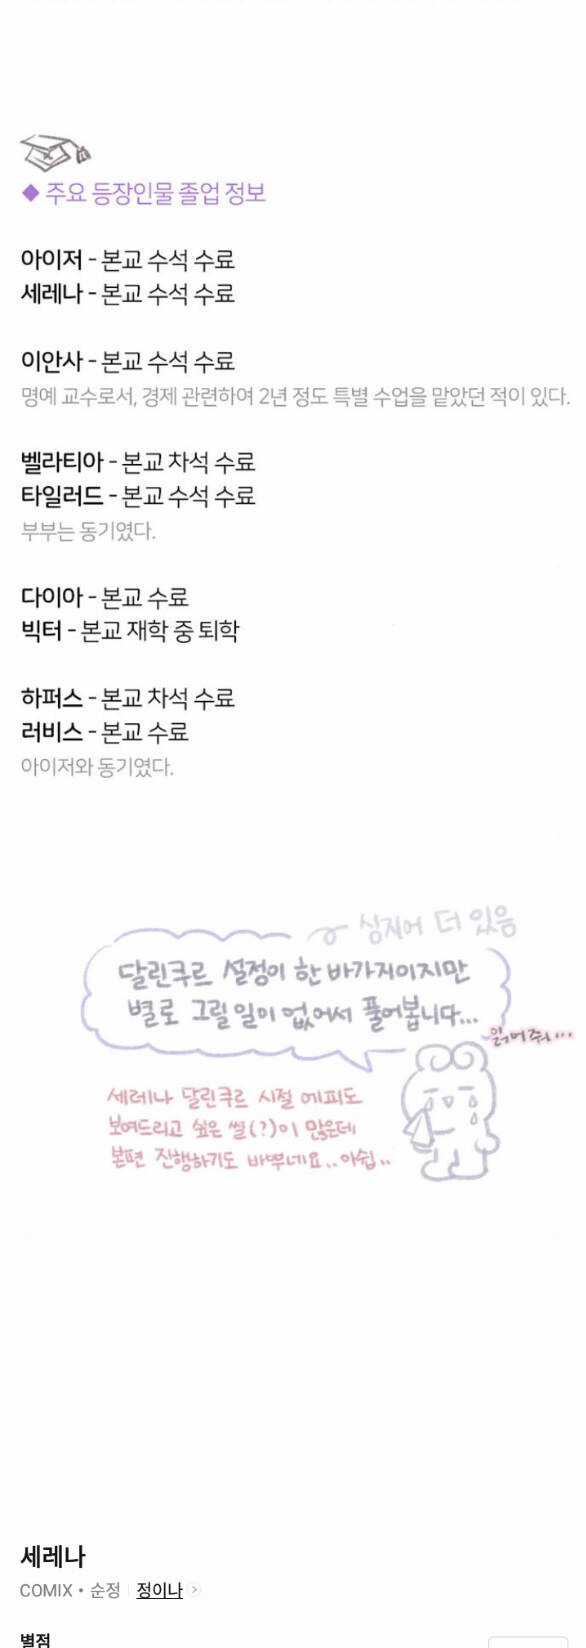 ◆ 주요 등장인물 졸업 정보
아이저 - 본교 수석 수료
세레나 - 본교 수석 수료
이안사 - 본교 수석 수료
명예 교수로서, 경제 관련하여 2년 정도 특별 수업을 맡았던 적이 있다.
벨라티아 - 본교 차석 수료
타일러드 - 본교 수석 수료
부부는 동기였다.
다이아 - 본교 수료
빅터 - 본교 재학 중 퇴학
하퍼스 - 본교 차석 수료
러비스 - 본교 수료
아이저와 동기였다.
심지어 더 있음
달린쿠르 설정이 한 바가지이지만
별로 그릴 일이 없어서 풀어봅니다...
읽어줘...
세레나 달린쿠르 시절 에피도
보여드리고 싶은 썰(?)이 많은데
본편 진행하기도 바쁘네요.. 아쉽..
세레나
COMIX • 순정 | 정이나 >
별점